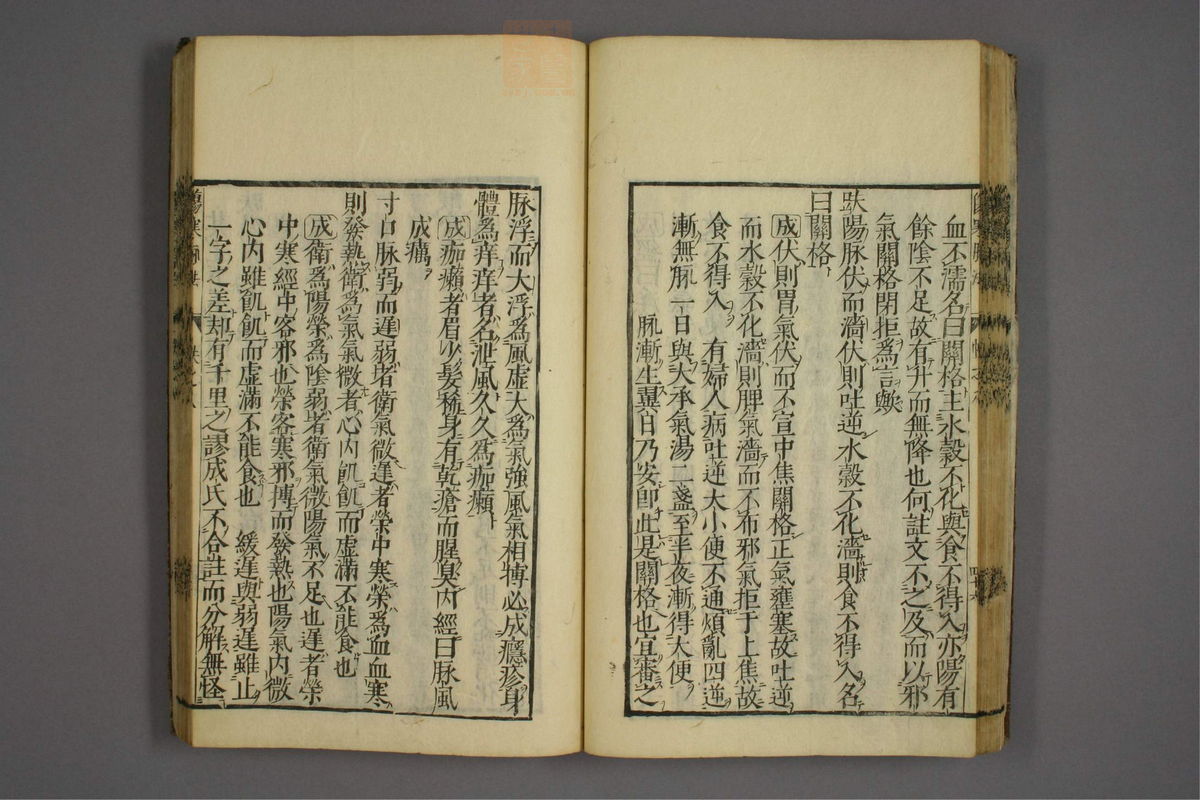 血不濡名曰關格主水穀不化與食不得入亦陽有
餘陰不足故有升而無降也何註文不之及而以邪
氣關格閉拒為言歟
趺陽脉伏而濇伏則吐逆水穀不化濇則食不得入名
曰關格
成伏則胃氣伏而不宣中焦關格正氣壅塞故吐逆
而水穀不化濇則脾氣濇而不布邪氣拒于上焦故
食不得入 有婦人病吐逆大小便不通煩亂四逆
漸無脉一日與大承氣湯二盞至半夜漸得大便
脉漸生翼日乃安即此是關格也宜審之
脉浮而大浮為風虛大為氣強風氣相摶必成癮疹身
體為痒痒者名泄風久久為痂癩
成痂癩者眉少髮稀身有乾瘡而腥臭内經曰脉風
成癘
寸口脉弱而遲弱者衛氣微遲者榮中寒榮為血血寒
則發熱衛為氣氣微者心内飢飢而虛滿不能食也
成衛為陽榮為陰弱者衛氣微陽氣不足也遲者榮
中寒經中客邪也榮客寒邪摶而發熱也陽氣内微
心内雖飢飢而虛滿不能食也 緩遲與弱遲雖止
一字之差却有千里之謬成氏不合註而分解無怪